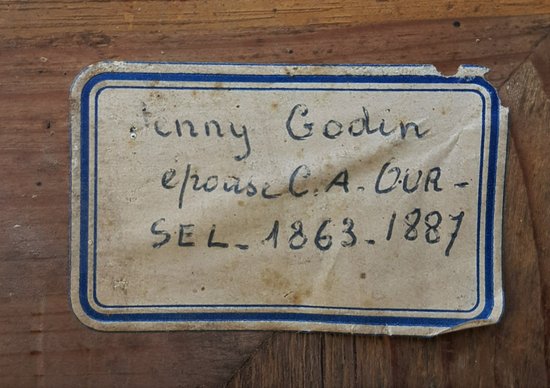 Jenny Godin
epouse C.A. OUR-
SEL_ 1863_1887